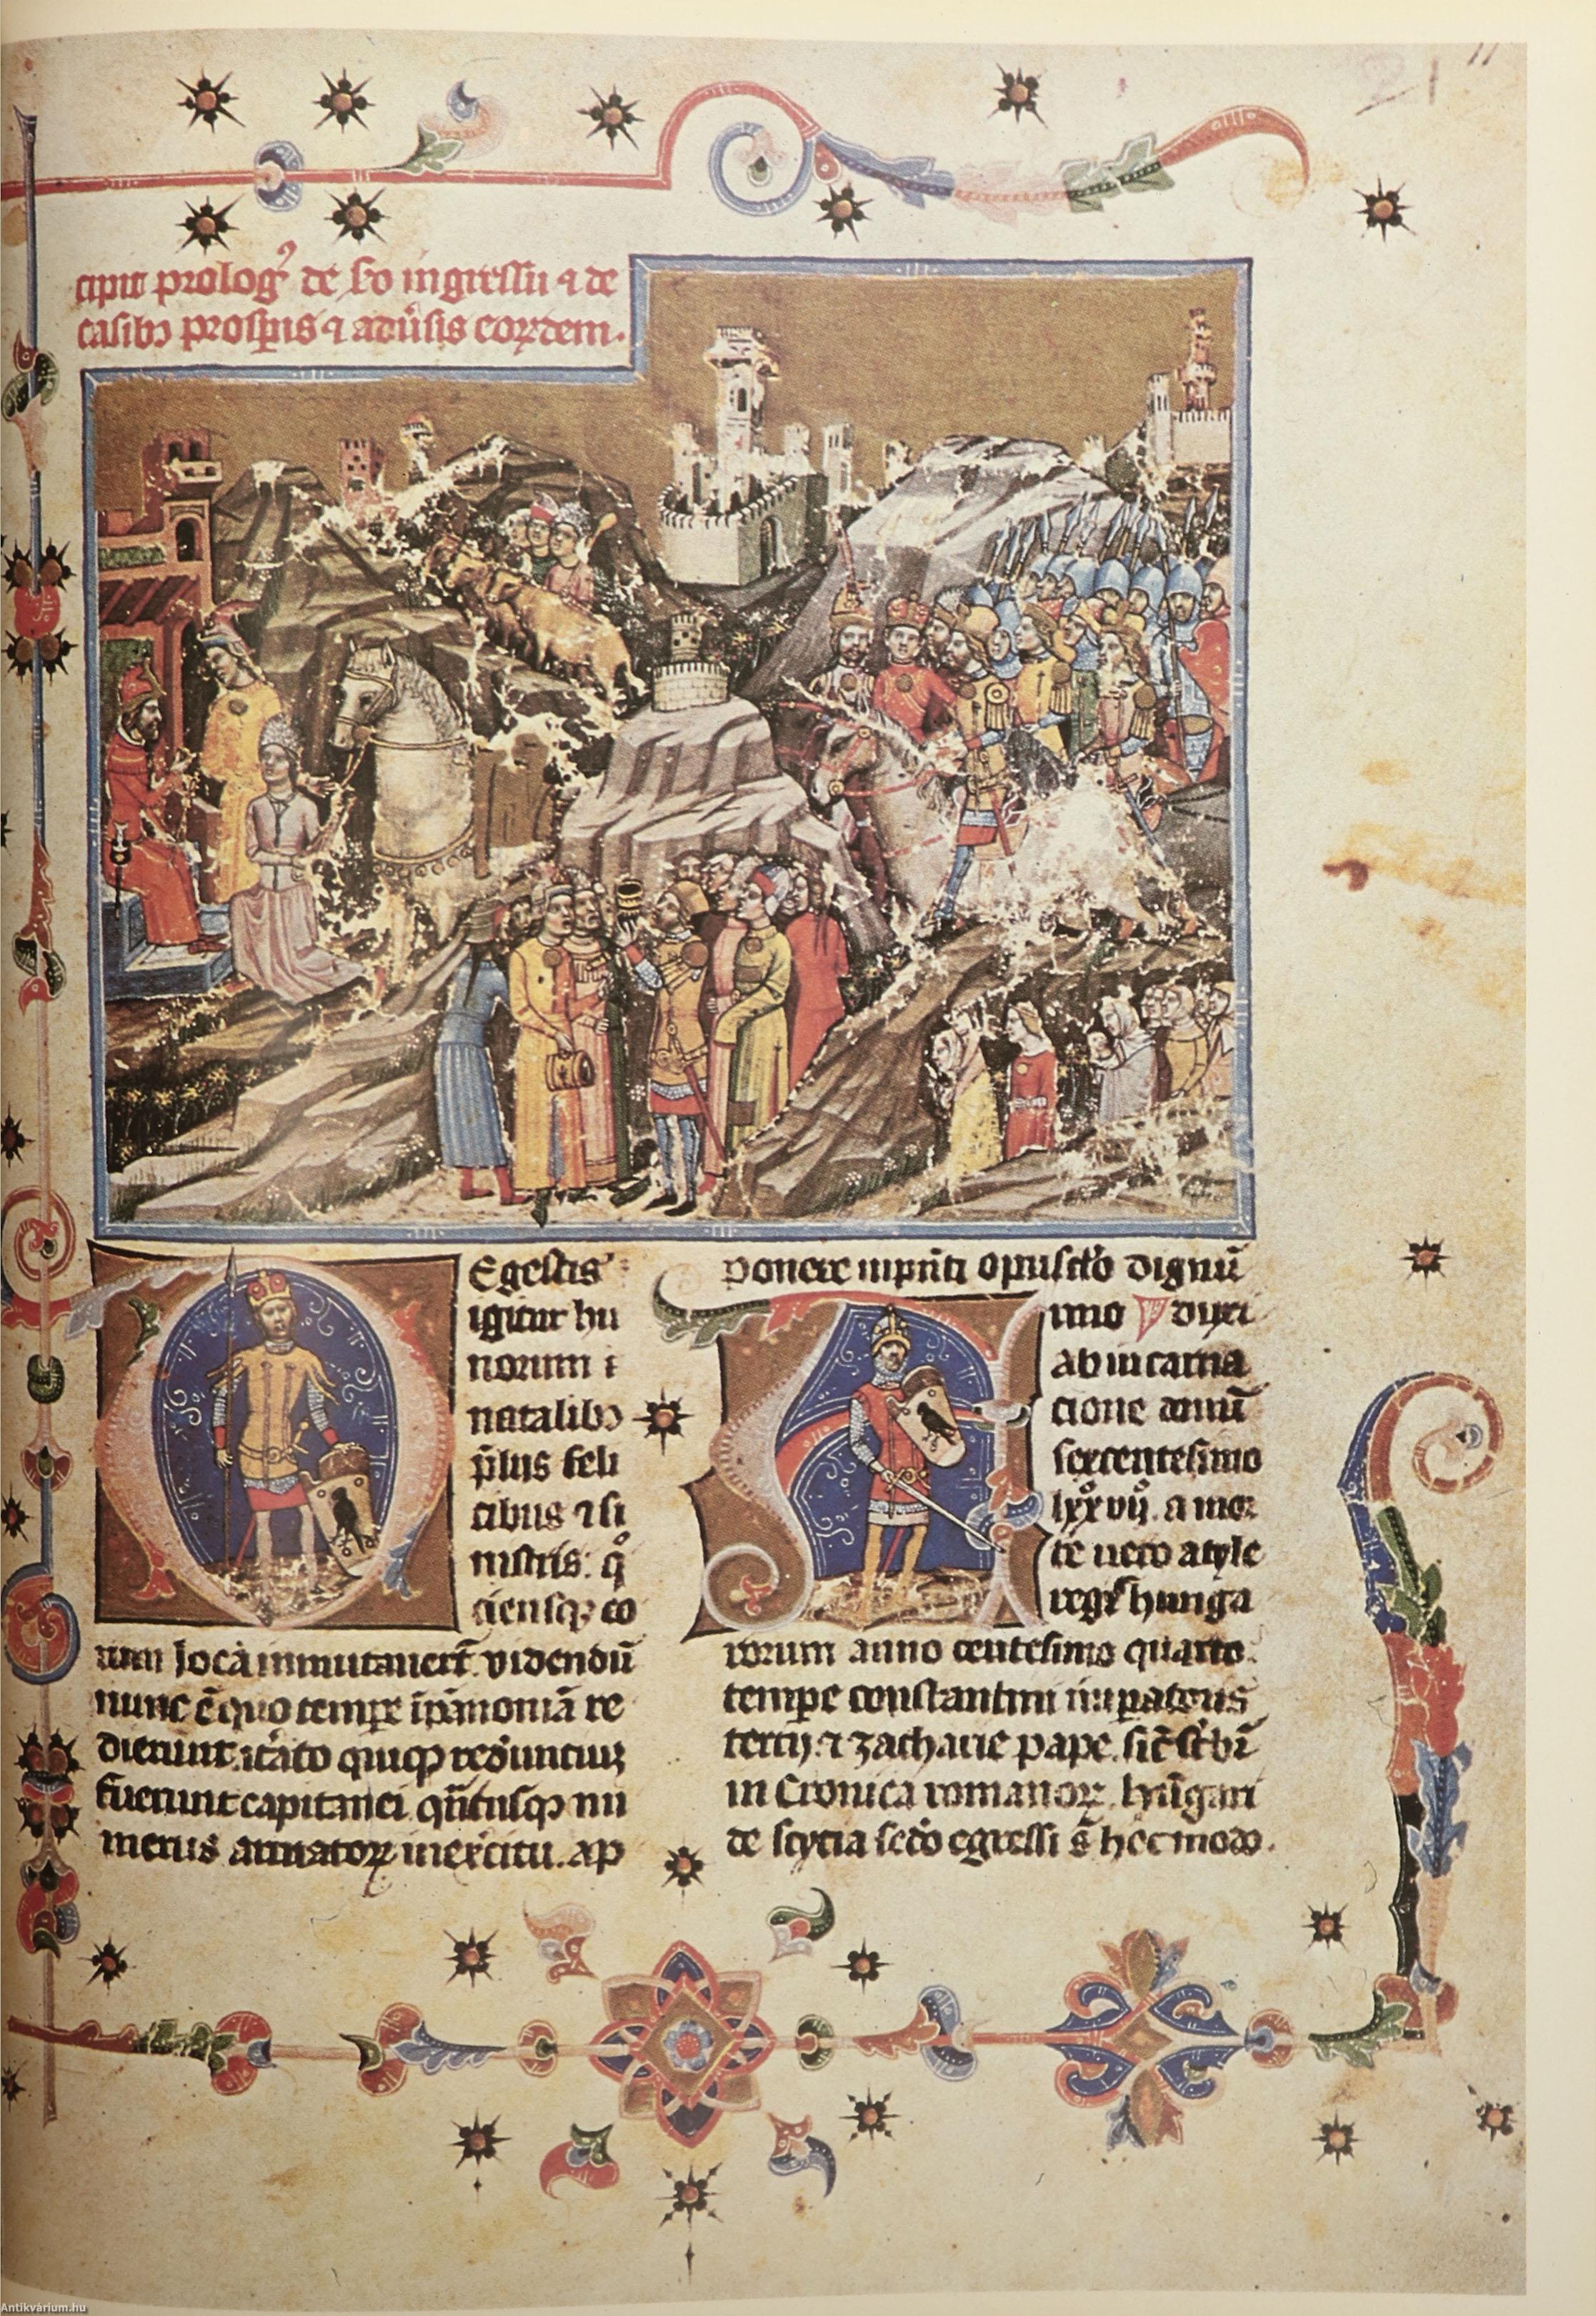 21 11
cipit prologꝰ de ẜo ingressu ⁊ de
casibꝫ prosꝑis ⁊ adūsis eoꝝdem.
DEgestis
igitur hu
norum i
natalibꝫ
p̄lus feli
cibus ⁊ si
nistris: qͦ
ciensqꝫ eo
rum loca inmutauert̄. videndū
nunc ē quo tempe ī pānoniā re
dierunt iťato quiqꝫ redeuntiuꝫ
fuerunt capitanei qn̄tusqꝫ nu
merus armatoꝝ in exercitu. ap
ponere in p̄nti opusclo dignū
Anno duxi
ab incarna
cione
sexcentesimo
lxxvij. a mor
te uero atyle
regis hunga
rorum anno centesimo quarto.
tempe constantini imꝑatoris
tercij. ⁊ zacharie pape. sic̄ sc̄bī
in Cronica romanoꝝ. hūgari
de scytia sedo egressi s̄t hoc modo.
Antikvárium.hu